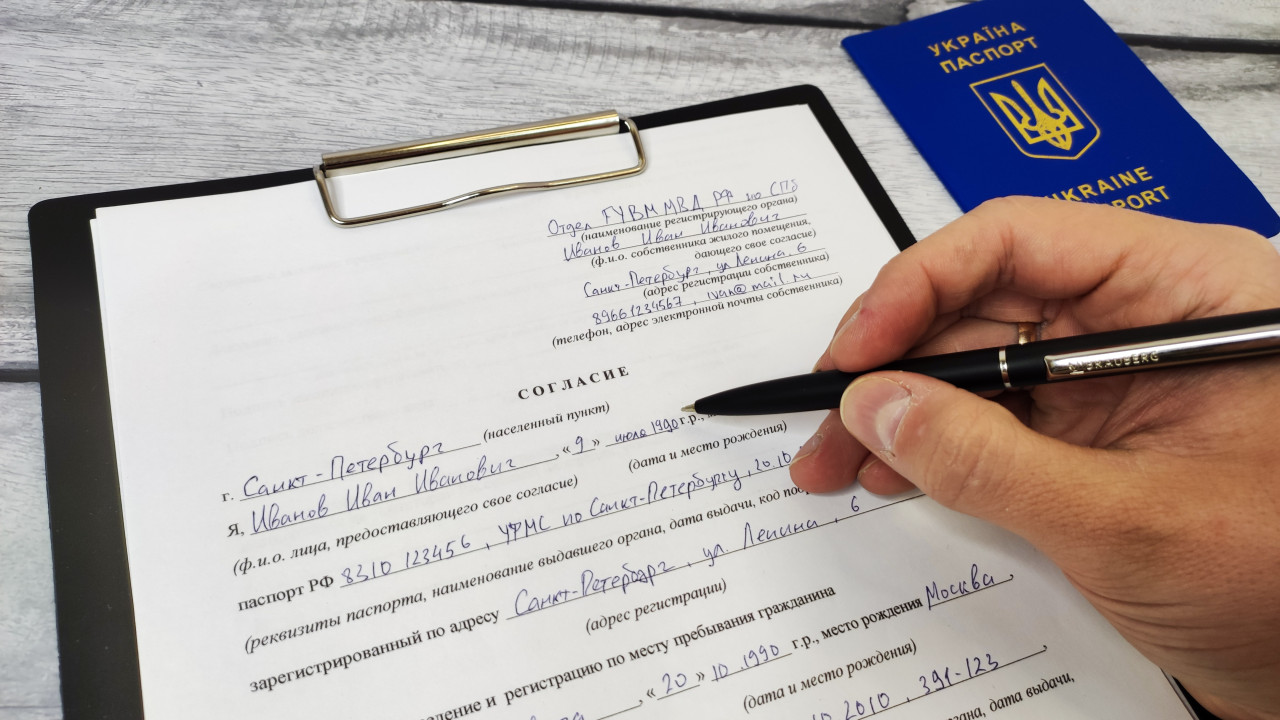 УКРАЇНА
ПАСПОРТ
UKRAINE
PORT
Отдел ГУВМ МВД РФ по СПб
(наименование регистрирующего органа)
Иванов Иван Иванович
(ф.и.о. собственника жилого помещения,
дающего свое согласие)
Санкт-Петербург, ул Ленина, 6
(адрес регистрации собственника)
89661234567, ivan@mail.ru
(телефон, адрес электронной почты собственника)
СОГЛАСИЕ
г. Санкт-Петербург (населенный пункт)
Я, Иванов Иван Иванович, «9» июля 1990 г.р.,
(ф.и.о. лица, предоставляющего свое согласие) (дата и место рождения)
паспорт РФ 8310 123456, УФМС по Санкт-Петербургу, 20.10
(реквизиты паспорта, наименование выдавшего органа, дата выдачи, код
зарегистрированный по адресу Санкт-Петербург, ул. Ленина, 6
(адрес регистрации)
и регистрацию по месту пребывания гражданина
, «20» 10.1990 г.р., место рождения Москва,
(дата и место рождения)
2010, 391-123,
дата выдачи,
BRAUBERG